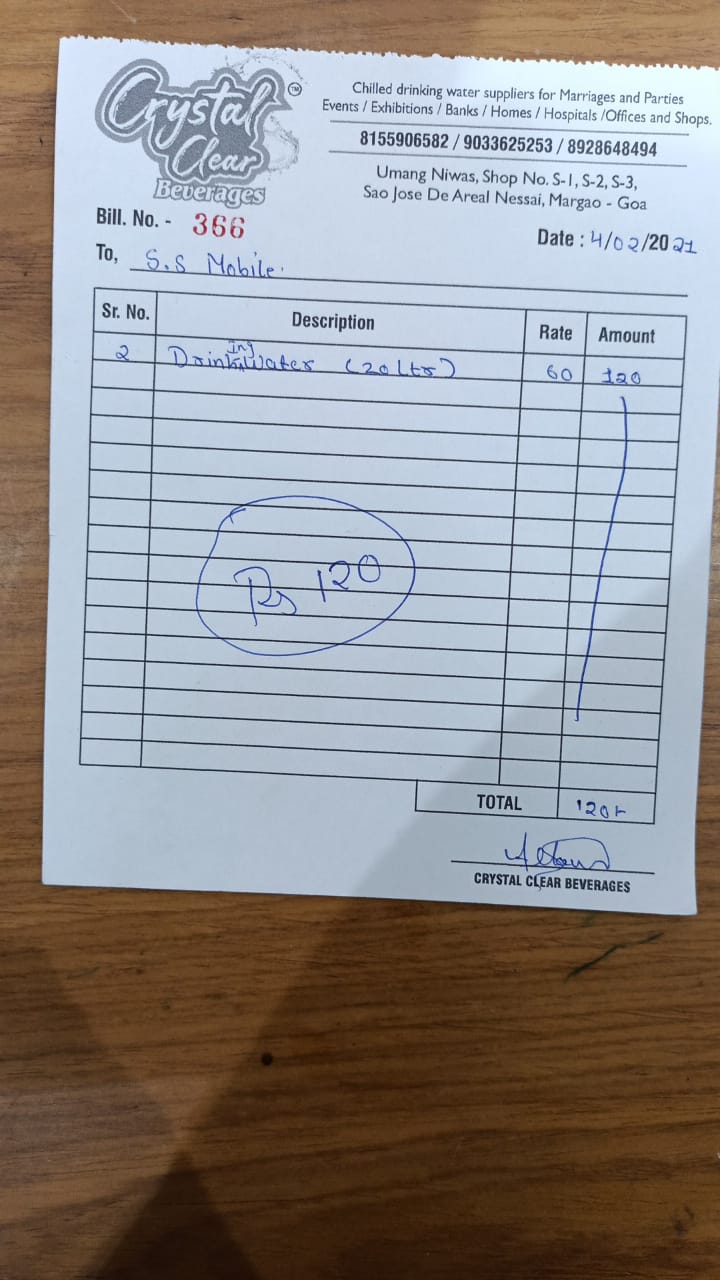 Crystal
Clear
Beverages
TM
Chilled drinking water suppliers for Marriages and Parties
Events / Exhibitions / Banks / Homes / Hospitals /Offices and Shops.
8155906582 / 9033625253 / 8928648494
Umang Niwas, Shop No. S-1, S-2, S-3,
Sao Jose De Areal Nessai, Margao - Goa
Bill. No. - 366
Date : 4/02/2021
To, S.S Mobile.
Sr. No. Description Rate Amount
2 Drinking Water (20Ltr) 60 120
Rs 120
TOTAL 120/-
CRYSTAL CLEAR BEVERAGES